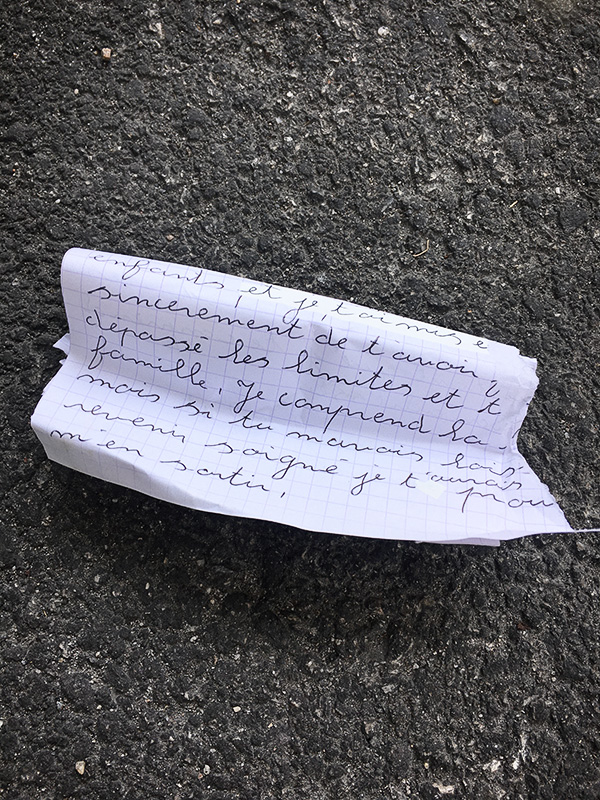 enfants, et je t'ai mis e
sincerement de t'avoir
dépassé les limites et t
famille, je comprend la
mais si tu mavais lais
revenir soigné je t'aurais prou
m'en sortir,